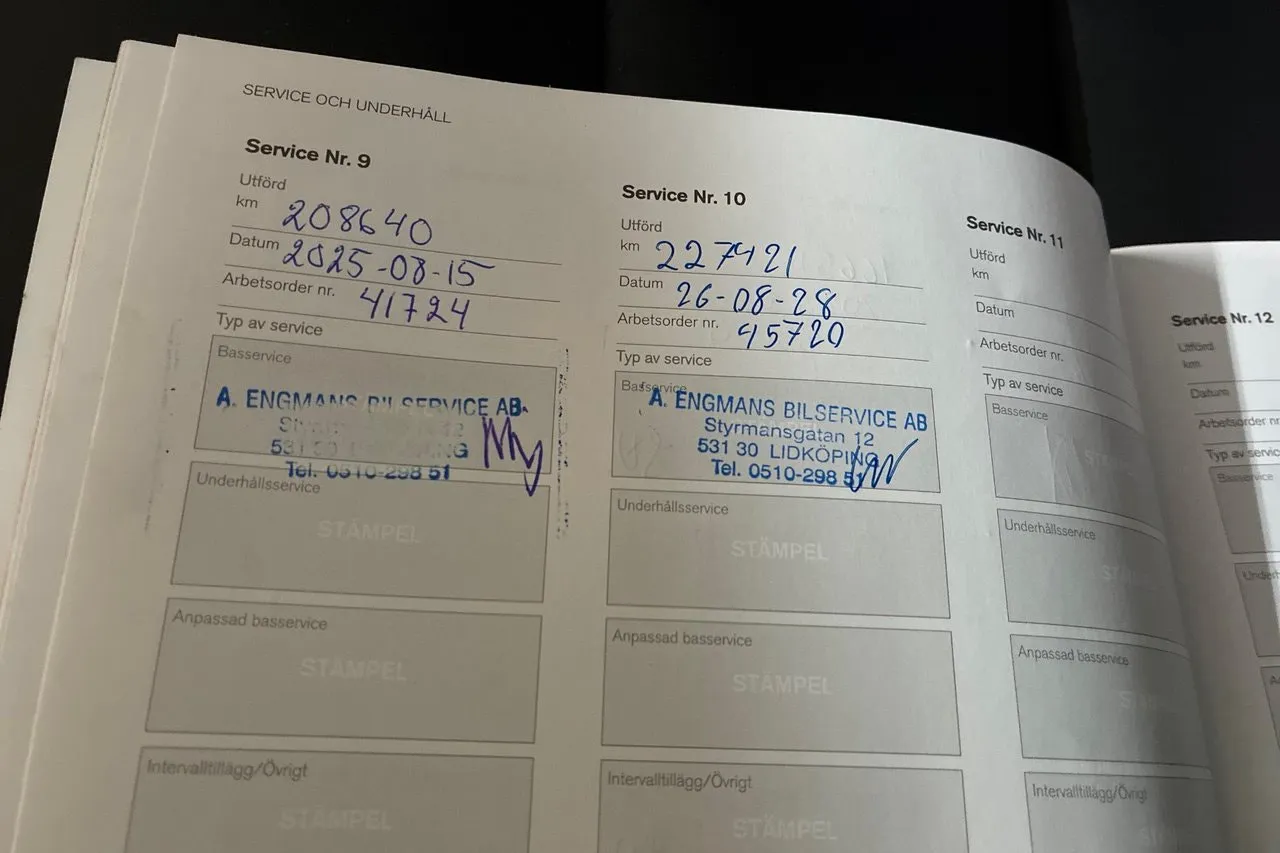 SERVICE OCH UNDERHÅLL
Service Nr. 9
Utförd
km 208640
Datum 2025-08-15
Arbetsorder nr. 41724
Typ av service
Basservice
A. ENGMANS BILSERVICE AB
531 30
Tel. 0510-298 51
Underhållsservice
STÄMPEL
Anpassad basservice
STÄMPEL
Intervalltillägg/Övrigt
STÄMPEL
Service Nr. 10
Utförd
km 227421
Datum 26-08-28
Arbetsorder nr. 45720
Typ av service
Basservice
A. ENGMANS BILSERVICE AB
Styrmansgatan 12
531 30 LIDKÖPING
Tel. 0510-298 51
Underhållsservice
STÄMPEL
Anpassad basservice
STÄMPEL
Intervalltillägg/Övrigt
STÄMPEL
Service Nr. 11
Utförd
km
Datum
Arbetsorder nr.
Typ av service
Basservice
Underhållsservice
Anpassad basservice
Intervalltillägg/Övrigt
Service Nr. 12
Utförd
km
Datum
Arbetsorder nr
Typ av servic
Basservice